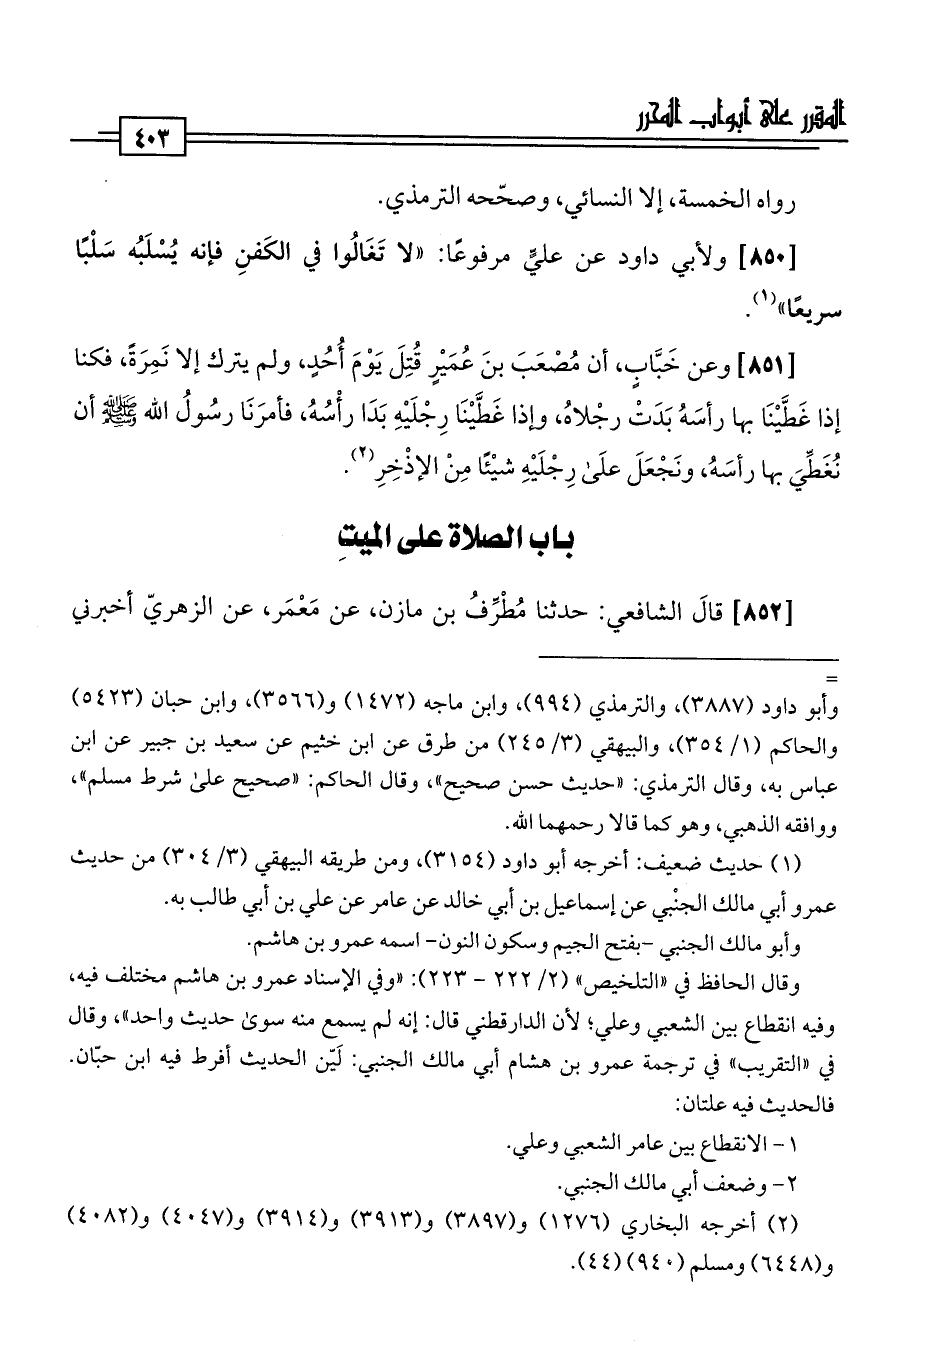 المقرر على أبواب المحرر
٤٠٣
رواه الخمسة، إلا النسائي، وصحّحه الترمذي.
[٨٥٠] ولأبي داود عن عليٍّ مرفوعًا: «لا تَغَالُوا في الكَفنِ فإنه يُسْلَبُه سَلْبًا
سريعًا»(١).
[٨٥١] وعن خَبَّابٍ، أن مُصْعَبَ بنَ عُمَيْرٍ قُتِلَ يَوْمَ أُحُدٍ، ولم يترك إلا نَمِرَةً، فكنا
إذا غَطَّيْنَا بها رأسَهُ بَدَتْ رجلاهُ، وإذا غَطَّيْنَا رِجْلَيْهِ بَدَا رأْسُهُ، فأمرَنَا رسولُ الله ﷺ أن
نُغَطِّيَ بها رأسَهُ، ونَجْعَلَ علىٰ رِجْلَيْهِ شيْئًا مِنْ الإذْخِرِ(٢).
باب الصلاة على الميتِ
[٨٥٢] قالَ الشافعي: حدثنا مُطْرِّفُ بن مازن، عن مَعْمَر، عن الزهريّ أخبرني
=
وأبو داود (٣٨٨٧)، والترمذي (٩٩٤)، وابن ماجه (١٤٧٢) و(٣٥٦٦)، وابن حبان (٥٤٢٣)
والحاكم (١/ ٣٥٤)، والبيهقي (٣/ ٢٤٥) من طرق عن ابن خثيم عن سعيد بن جبير عن ابن
عباس به، وقال الترمذي: «حديث حسن صحيح»، وقال الحاكم: «صحيح علىٰ شرط مسلم»،
ووافقه الذهبي، وهو كما قالا رحمهما الله.
(١) حديث ضعيف: أخرجه أبو داود (٣١٥٤)، ومن طريقه البيهقي (٣/ ٣٠٤) من حديث
عمرو أبي مالك الجنْبي عن إسماعيل بن أبي خالد عن عامر عن علي بن أبي طالب به.
وأبو مالك الجنبي -بفتح الجيم وسكون النون- اسمه عمرو بن هاشم.
وقال الحافظ في «التلخيص» (٢/ ٢٢٢ - ٢٢٣): «وفي الإسناد عمرو بن هاشم مختلف فيه،
وفيه انقطاع بين الشعبي وعلي؛ لأن الدارقطني قال: إنه لم يسمع منه سوىٰ حديث واحد»، وقال
في «التقريب» في ترجمة عمرو بن هشام أبي مالك الجنبي: لَيّن الحديث أفرط فيه ابن حبّان.
فالحديث فيه علتان:
١- الانقطاع بين عامر الشعبي وعلي.
٢- وضعف أبي مالك الجنبي.
(٢) أخرجه البخاري (١٢٧٦) و(٣٨٩٧) و(٣٩١٣) و(٣٩١٤) و(٤٠٤٧) و(٤٠٨٢)
و(٦٤٤٨) ومسلم (٩٤٠) (٤٤).